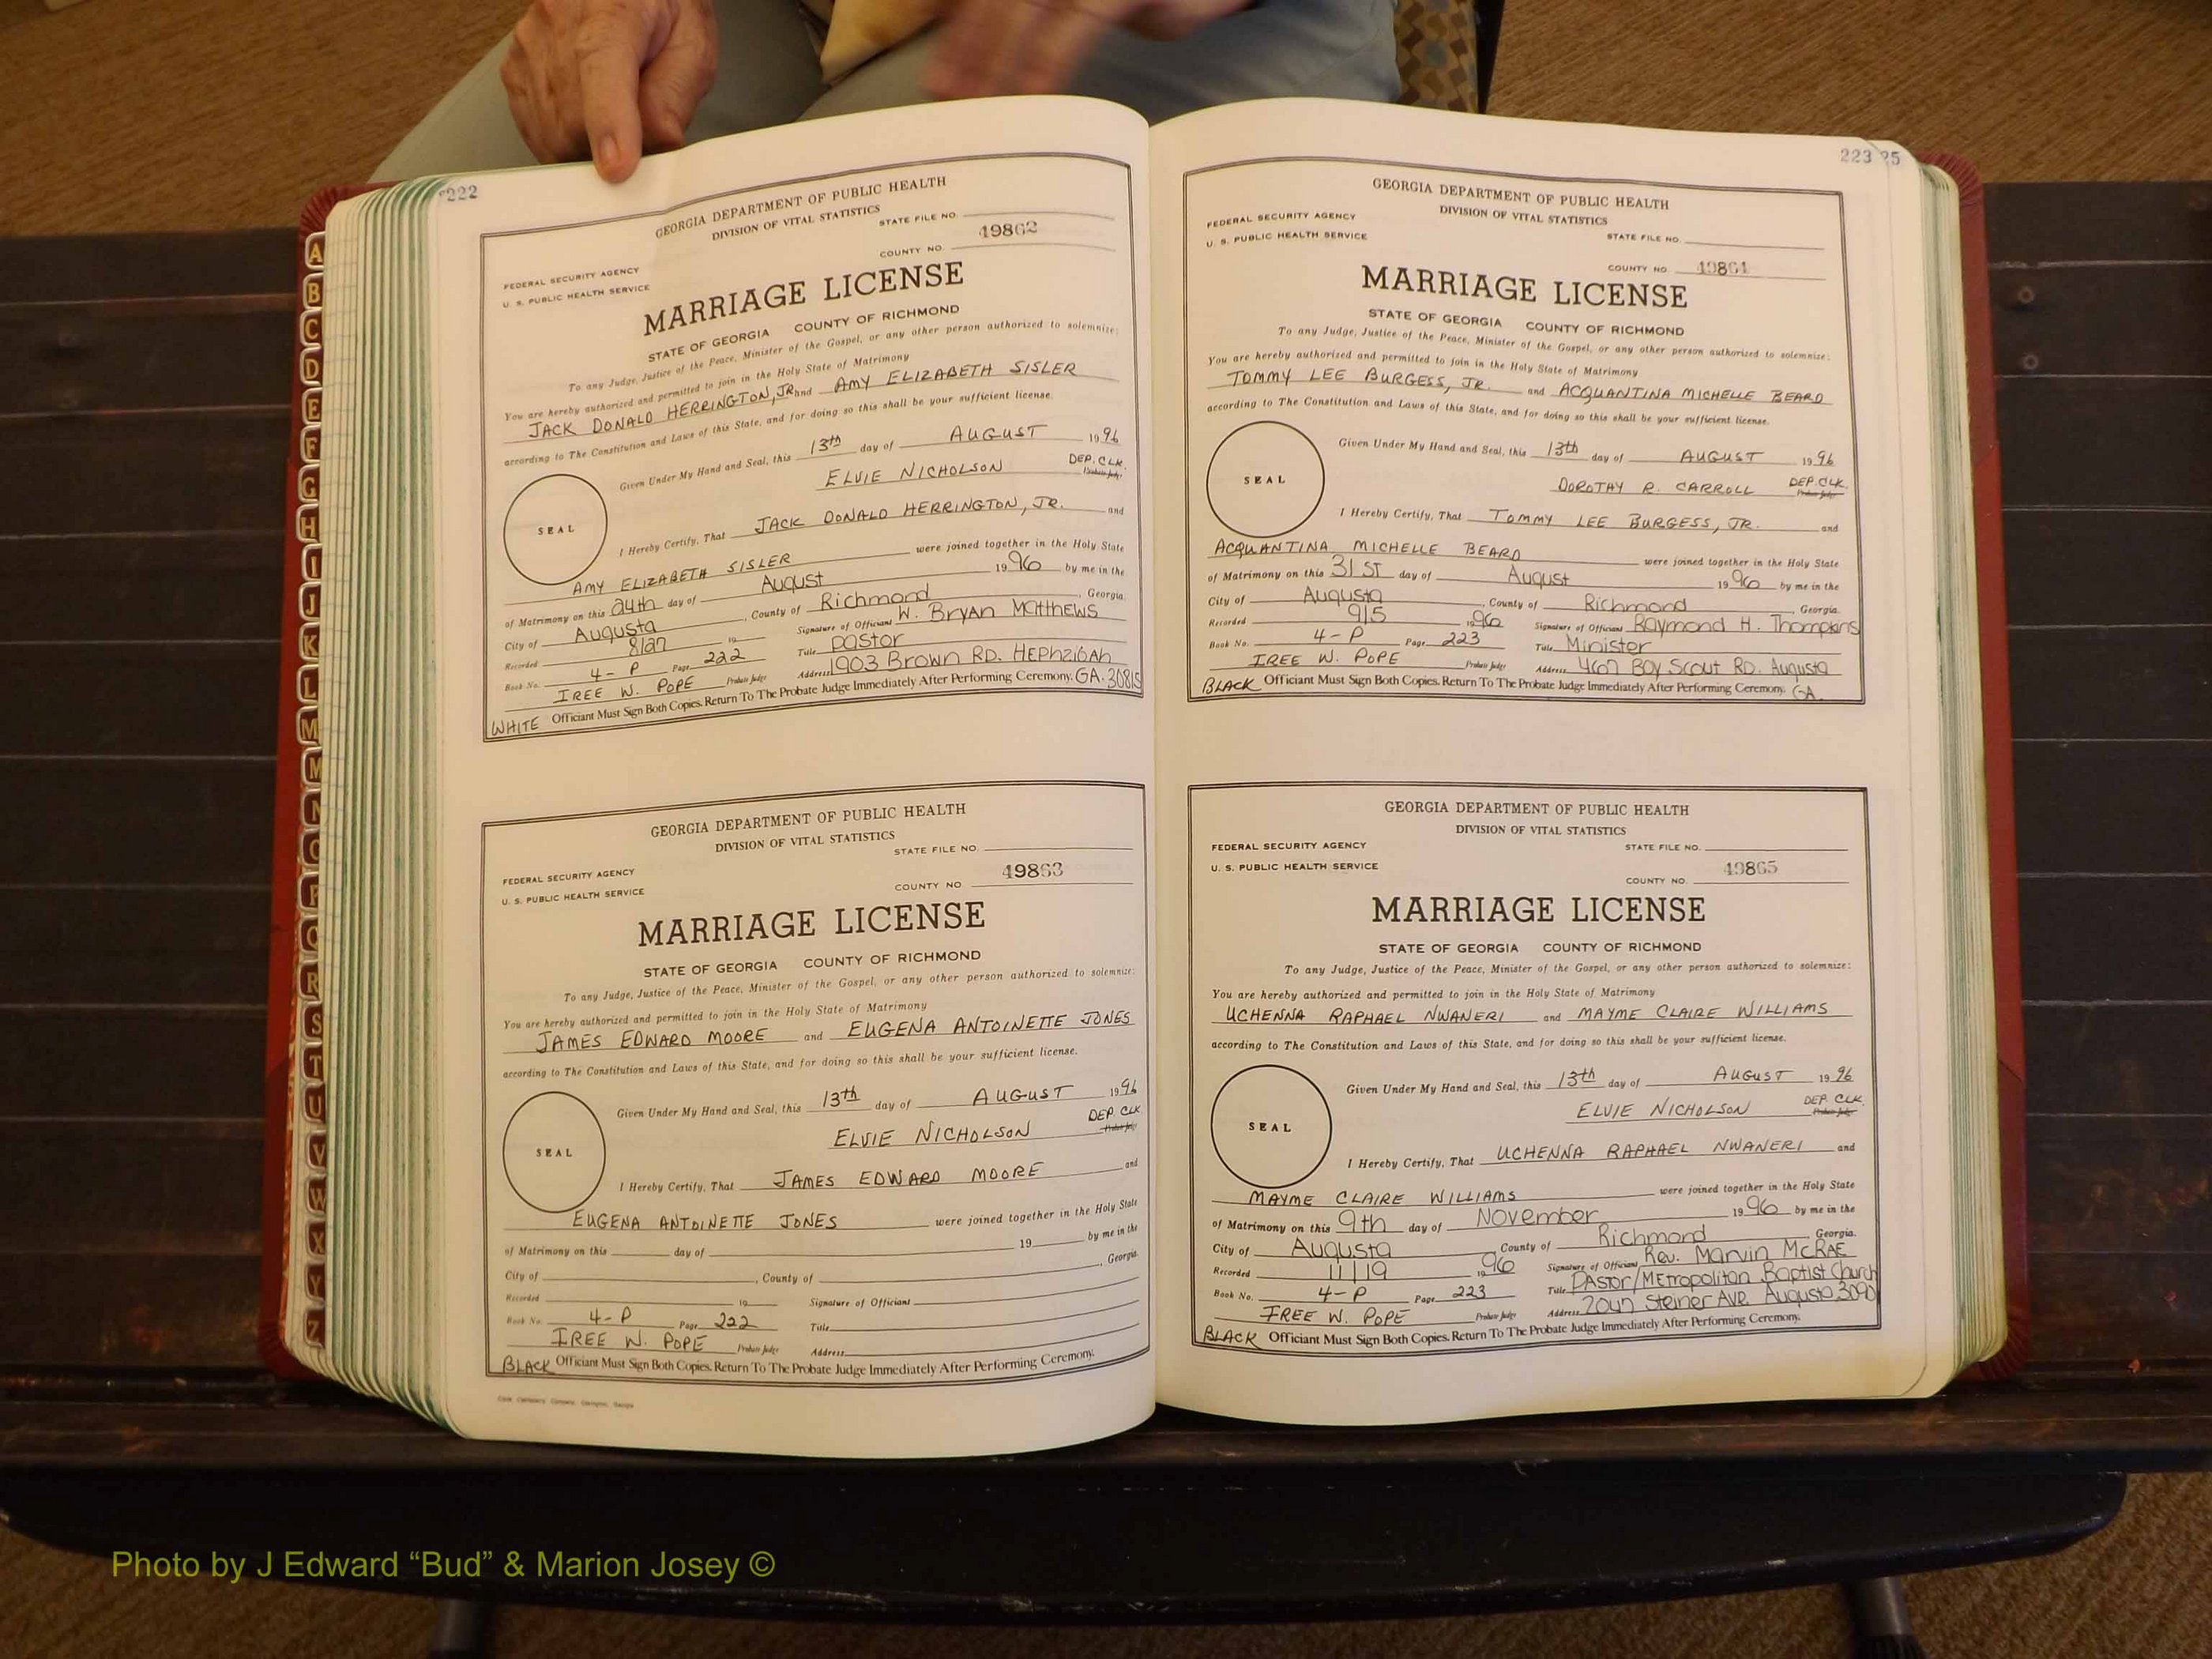 222
GEORGIA DEPARTMENT OF PUBLIC HEALTH
DIVISION OF VITAL STATISTICS
STATE FILE NO.
COUNTY NO. 49862
FEDERAL SECURITY AGENCY
U. S. PUBLIC HEALTH SERVICE
MARRIAGE LICENSE
STATE OF GEORGIA COUNTY OF RICHMOND
To any Judge, Justice of the Peace, Minister of the Gospel, or any other person authorized to solemnize:
You are hereby authorized and permitted to join in the Holy State of Matrimony
JACK DONALD HERRINGTON, JR. and AMY ELIZABETH SISLER
according to The Constitution and Laws of this State, and for doing so this shall be your sufficient license.
Given Under My Hand and Seal, this 13th day of AUGUST 1996
ELVIE NICHOLSON DEP. CLK. Probate Judge
SEAL
I Hereby Certify, That JACK DONALD HERRINGTON, JR. and
AMY ELIZABETH SISLER were joined together in the Holy State
of Matrimony on this 24th day of August 1996 by me in the
City of Augusta, County of Richmond, Georgia.
Recorded 8/27 19 Signature of Official W. Bryan Matthews
Book No. 4-P Page 222 Title Pastor
IREE W. POPE Probate Judge Address 1903 Brown RD. HEPhzibAh
GA. 30815
WHITE Officiant Must Sign Both Copies. Return To The Probate Judge Immediately After Performing Ceremony.
GEORGIA DEPARTMENT OF PUBLIC HEALTH
DIVISION OF VITAL STATISTICS
STATE FILE NO.
COUNTY NO 49863
FEDERAL SECURITY AGENCY
U. S. PUBLIC HEALTH SERVICE
MARRIAGE LICENSE
STATE OF GEORGIA COUNTY OF RICHMOND
To any Judge, Justice of the Peace, Minister of the Gospel, or any other person authorized to solemnize:
You are hereby authorized and permitted to join in the Holy State of Matrimony
JAMES EDWARD MOORE and EUGENA ANTOINETTE JONES
according to The Constitution and Laws of this State, and for doing so this shall be your sufficient license.
Given Under My Hand and Seal, this 13th day of AUGUST 1996
ELVIE NICHOLSON DEP. CLK. Probate Judge
SEAL
I Hereby Certify, That JAMES EDWARD MOORE and
EUGENA ANTOINETTE JONES were joined together in the Holy State
of Matrimony on this day of 19 by me in the
City of , County of , Georgia.
Recorded 19 Signature of Official
Book No. 4-P Page 222 Title
IREE W. POPE Probate Judge Address
BLACK Officiant Must Sign Both Copies. Return To The Probate Judge Immediately After Performing Ceremony.
223 25
GEORGIA DEPARTMENT OF PUBLIC HEALTH
DIVISION OF VITAL STATISTICS
FEDERAL SECURITY AGENCY
U. S. PUBLIC HEALTH SERVICE
STATE FILE NO.
COUNTY NO. 49864
MARRIAGE LICENSE
STATE OF GEORGIA COUNTY OF RICHMOND
To any Judge, Justice of the Peace, Minister of the Gospel, or any other person authorized to solemnize:
You are hereby authorized and permitted to join in the Holy State of Matrimony
TOMMY LEE BURGESS, JR. and ACQUANTINA MICHELLE BEARD
according to The Constitution and Laws of this State, and for doing so this shall be your sufficient license.
Given Under My Hand and Seal, this 13th day of AUGUST 1996
DOROTHY R. CARROLL DEP. CLK. Probate Judge
SEAL
I Hereby Certify, That TOMMY LEE BURGESS, JR. and
ACQUANTINA MICHELLE BEARD were joined together in the Holy State
of Matrimony on this 31ST day of August 1996 by me in the
City of Augusta, County of Richmond, Georgia.
Recorded 9/5 1996 Signature of Official Raymond H. Thompkins
Book No. 4-P Page 223 Title Minister
IREE W. POPE Probate Judge Address Boy Scout RD. Augusta
GA.
BLACK Officiant Must Sign Both Copies. Return To The Probate Judge Immediately After Performing Ceremony.
GEORGIA DEPARTMENT OF PUBLIC HEALTH
DIVISION OF VITAL STATISTICS
FEDERAL SECURITY AGENCY
U. S. PUBLIC HEALTH SERVICE
STATE FILE NO.
COUNTY NO. 49865
MARRIAGE LICENSE
STATE OF GEORGIA COUNTY OF RICHMOND
To any Judge, Justice of the Peace, Minister of the Gospel, or any other person authorized to solemnize:
You are hereby authorized and permitted to join in the Holy State of Matrimony
UCHENNA RAPHAEL NWANERI and MAYME CLAIRE WILLIAMS
according to The Constitution and Laws of this State, and for doing so this shall be your sufficient license.
Given Under My Hand and Seal, this 13th day of AUGUST 1996
ELVIE NICHOLSON DEP. CLK. Probate Judge
SEAL
I Hereby Certify, That UCHENNA RAPHAEL NWANERI and
MAYME CLAIRE WILLIAMS were joined together in the Holy State
of Matrimony on this 9th day of November 1996 by me in the
City of Augusta County of Richmond Georgia.
Recorded 11/19 1996 Signature of Official Rev. Marvin McRAE
Book No. 4-P Page 223 Title PAstor/MEtropolitan Baptist Church
IREE W. POPE Probate Judge Address 2047 Steiner AVE Augusta
BLACK Officiant Must Sign Both Copies. Return To The Probate Judge Immediately After Performing Ceremony.
A
B
C
D
E
F
G
H
I
J
K
L
M
M
N
O
P
Q
R
S
T
U
V
W
X
Y
Z
Photo by J Edward “Bud” & Marion Josey ©